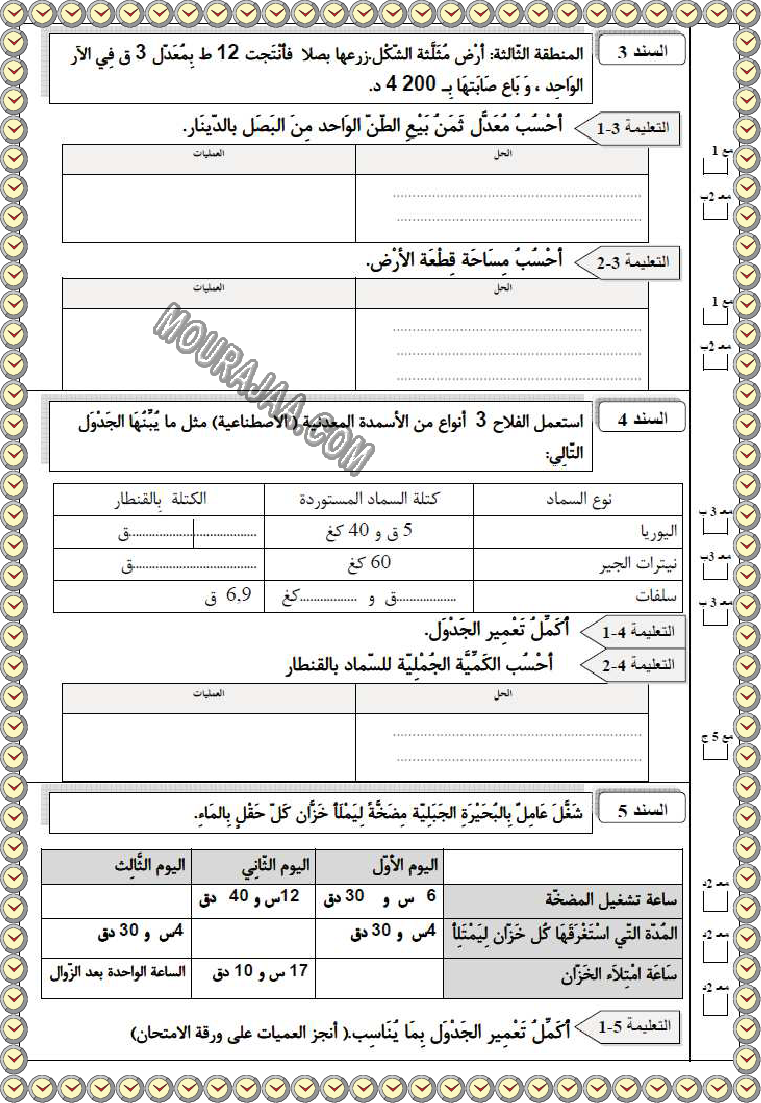 السند 3
المنطقة الثالثة: أرْض مُثَلَّثة الشّكْل.زرعها بصلا فأنْتَجت 12 ط بِمُعَدّل 3 ق فِي الآر
الوَاحِدِ ، وَ بَاع صَابَتهَا بِـ 200 4 د.
التعليمة 3-1
أحْسُبُ مُعَدَّل ثَمَنُ بَيْعِ الطّنّ الوَاحد مِنَ البَصَل بالدّينَار.
مع 1
الحل
العمليات
معـ 2ب
.......................................................
.......................................................
التعليمة 3-2
أحْسُبُ مِسَاحَة قِطْعَة الأرْض.
الحل
العمليات
مع 1
.......................................................
معـ 2ب
.......................................................
.......................................................
MOURAJAA.COM
السند 4
استعمل الفلاح 3 أنواع من الأسمدة المعدنية ( الاصطناعية) مثل ما يُبيِّنُهَا الجَدْوَل
التّالِي:
نوع السماد
كتلة السماد المستوردة
الكتلة بِالقنطار
معـ 3 ب
اليوريا
5 ق و 40 كغ
.................................ق
معـ 3ب
نيترات الجير
60 كغ
.................................ق
معـ 3 ب
سلفات
.................ق و .................كغ
6,9 ق
التعليمة 4-1
أكَمِّلُ تَعْمِير الجَدْوَل.
التعليمة 4-2
أحْسُب الكَمِّيَّة الجُمْلِيّة للسّماد بالقنطار
الحل
العمليات
.......................................................
مع 5 ج
.......................................................
السند 5
شَغَّلَ عَامِلٌ بِالبُحَيْرَةِ الجَبَلِيّة مِضَخَّةً لِيَمْلَأَ خَزَّان كَلّ حَقْلٍ بِالمَاءِ.
اليوم الأوّل
اليوم الثّاني
اليوم الثّالِث
معـ 2د
ساعة تشغيل المضخّة
6 س و 30 دق
12س و 40 دق
معـ 2د
المُدّة التّي اسْتَغْرَقَهَا كُل خَزّان لِيَمْتَلِأ
4س و 30 دق
4س و 30 دق
سَاعَة امْتِلَاء الخَزّان
17 س و 10 دق
الساعة الواحدة بعد الزّوال
معـ 2د
التعليمة 5-1
أكَمِّلُ تَعْمِير الجَدْوَل بِمَا يُنَاسِب.( أنجز العميات على ورقة الامتحان)